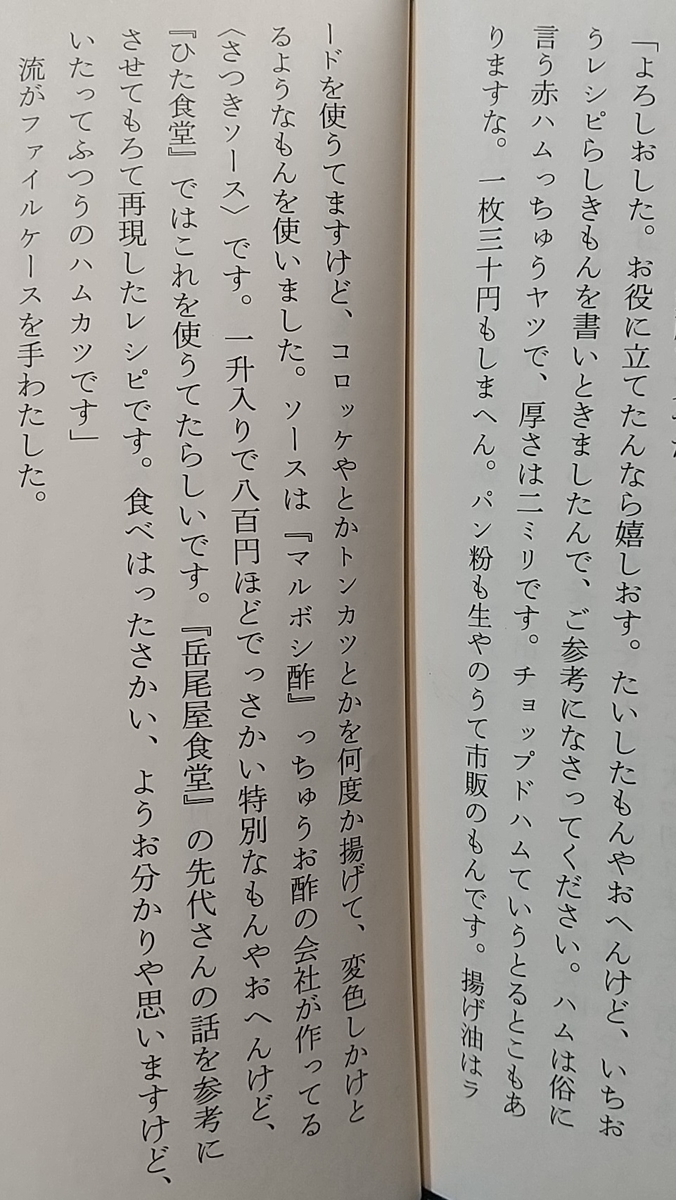 「よろしおした。お役に立てたんなら嬉しおす。たいしたもんやおへんけど、いちお
うレシピらしきもんを書いときましたんで、ご参考になさってください。ハムは俗に
言う赤ハムっちゅうヤツで、厚さは二ミリです。チョップドハムていうとるとこもあ
りますな。一枚三十円もしまへん。パン粉も生やのうて市販のもんです。揚げ油はラ
ードを使うてますけど、コロッケやとかトンカツとかを何度か揚げて、変色しかけと
るようなもんを使いました。ソースは『マルボシ酢』っちゅうお酢の会社が作ってる
〈さつきソース〉です。一升入りで八百円ほどでっさかい特別なもんやおへんけど、
『ひた食堂』ではこれを使うてたらしいです。『岳尾屋食堂』の先代さんの話を参考に
させてもろて再現したレシピです。食べはったさかい、ようお分かりや思いますけど、
いたってふつうのハムカツです」
流がファイルケースを手わたした。